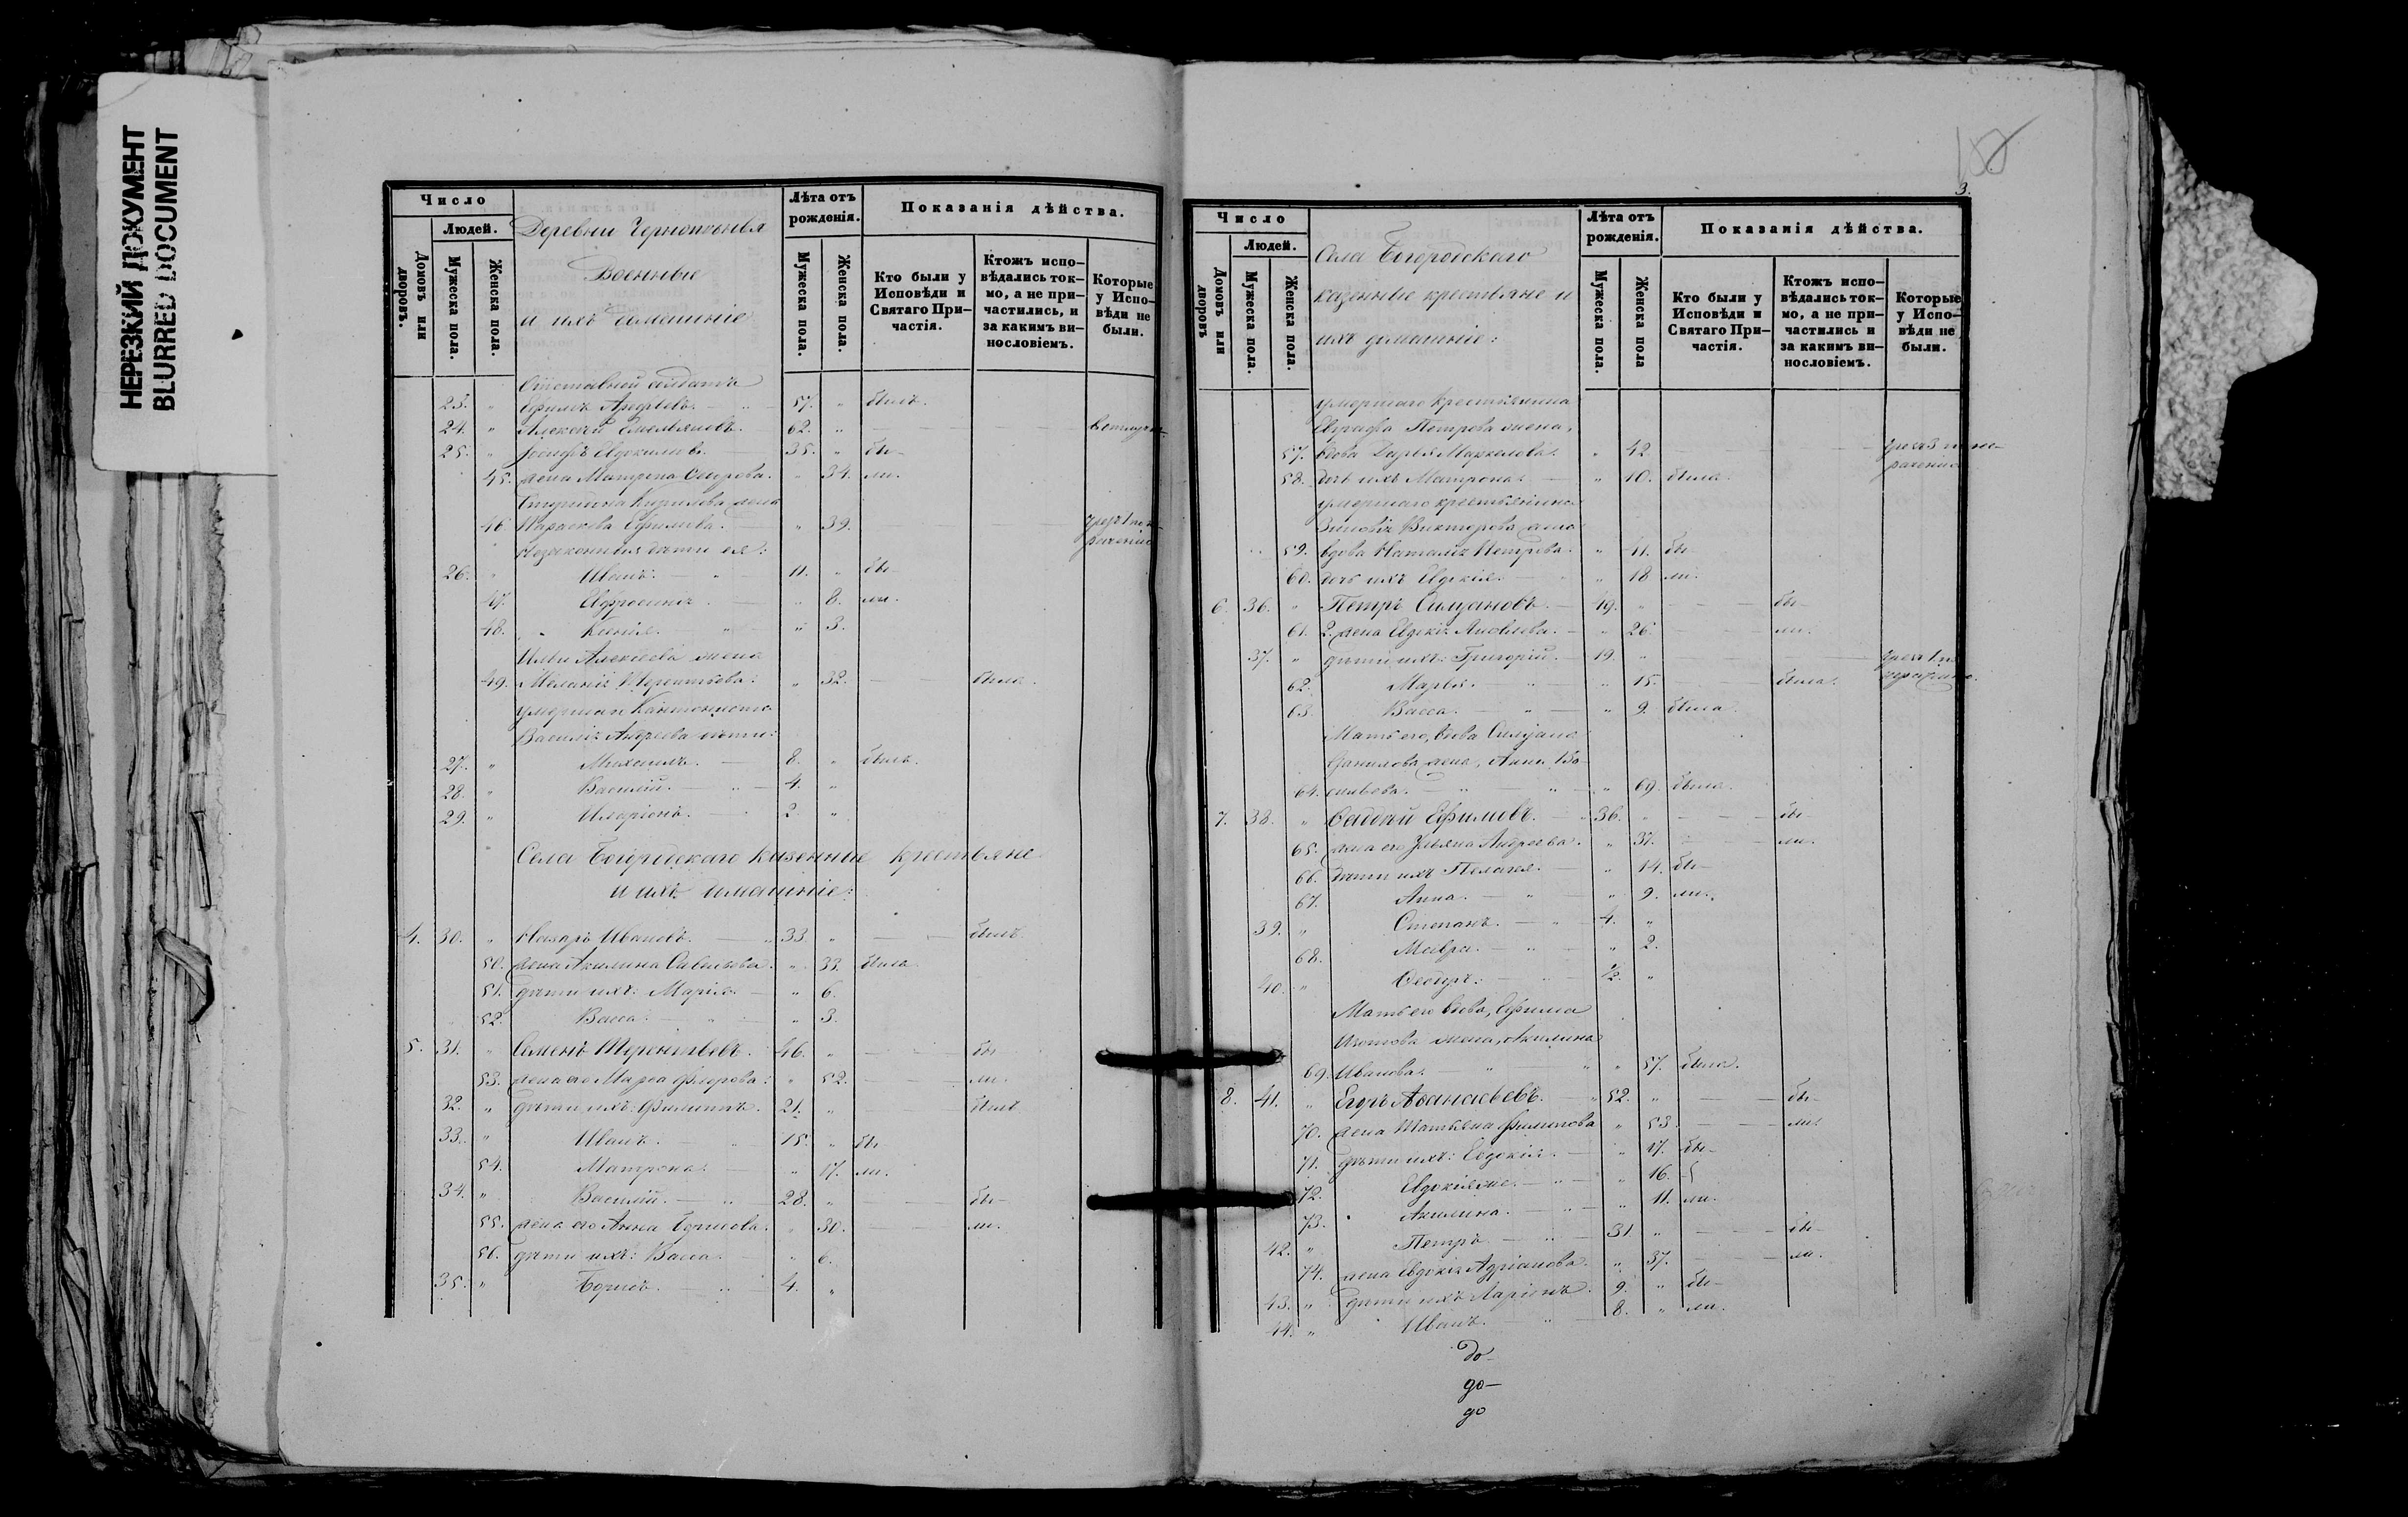 НЕРЕЗКИЙ ДОКУМЕНТ
BLURRED DOCUMENT
Число
Людей.
Домовъ или дворовъ.
Мужеска пола.
Женска пола.
Деревни
Военные
и ихъ домашніе
Лѣта отъ рожденія.
Мужеска пола.
Женска пола.
Показанія дѣйства.
Кто были у Исповѣди и Святаго Причастія.
Ктожъ исповѣдались токмо, а не причастились, и за какимъ винословіемъ.
Которые у Исповѣди не были.
Отставной солдатъ
23. " Ефимъ 57. " былъ.
24. " Алексѣй Емельяновъ. 62. "
25. " Іосифъ Евдокимовъ. 35. " бы-
45. жена Матрона " 34. ли.
Кирилова жена
46. Параскева Ефимова. " 39.
Незаконныя дѣти ея:
26. " Иванъ. 11. " бы-
47. Евфросинія. " 8. ли.
48. Ксенія. " 3.
Ильи Алексѣева жена
49. Меланія Терентьева: " 32. — была.
умершаго Кантониста
Василія Андреева дѣти:
27. " Михаилъ. 8. " былъ.
28. " Василій. 4. "
29. " Иларіонъ. 2. "
Села Богородскаго казенные крестьяне
и ихъ домашніе:
4. 30. " Назаръ Ивановъ. 33. " — былъ
50. жена Акилина Савельева. " 33. была
51. дѣти ихъ: Марія. " 6.
52. Васса. " 3.
5. 31. " Семенъ Терентьевъ. 46. " — бы
53. жена его Марѳа Флорова: " 52. — ли.
32. " дѣти ихъ: Филиппъ. 21. " — былъ
33. " Иванъ. 15. " бы
54. Матрона. " 17. ли.
34. " Василій. 28. " — бы-
55. жена его Анна Борисова. " 30. — ли.
56. дѣти ихъ: Васса. " 6.
35. " Борисъ. 4. "
3.
Число
Людей.
Домовъ или дворовъ
Мужеска пола.
Женска пола.
Села Богородскаго
казенные крестьяне и
ихъ домашніе:
Лѣта отъ рожденія.
Мужеска пола.
Женска пола
Показанія дѣйства.
Кто были у Исповѣди и Святаго Причастія.
Ктожъ исповѣдались токмо, а не причастились и за какимъ винословіемъ.
Которые у Исповѣди не были.
умершаго крестьянина
Евграфа Петрова жена,
57. вдова Дарья Маркелова. " 42.
58. дочь ихъ Матрона. " 10. была.
умершаго крестьянина
Зиновія Викторова жена
59. вдова Наталія Петрова. " 41. бы-
60. дочь ихъ Евдокія. " 18 ли.
6. 36. " Петръ Силуановъ. 49. " — бы-
61. 2. жена Евдокія Яковлева. " 26. — ли.
37. " дѣти ихъ: Григорій. 19. "
62. Марья. " 15. — была.
63. Васса. " 9. была.
Мать его, вдова Силуана
Данилова жена, Анна Ва-
64. сильева. " 69. была.
7. 38. " Ѳаддей Ефимовъ. 36. " — бы-
65. жена его Ульяна Андреева. " 37. — ли.
66. дѣти ихъ Пелагея. " 14. бы-
67. Анна. " 9. ли.
39. " Степанъ. 4. "
68. Мавра. " 2.
40. " Ѳеодоръ. ½. "
Мать его вдова, Ефима
Изотова жена, Акилина
69. Иванова. " 57. была.
8. 41. " Егоръ Аѳанасьевъ. 52. " — бы-
70. жена Татьяна Филипова " 53. — ли.
71. дѣти ихъ: Евдокія. " 17. бы-
72. Евдокія же. " 16.
73. Акилина. " 11. ли.
42. " Петръ. 31 " — бы-
74. жена Евдокія Адріанова. " 37. — ли.
43. " дѣти ихъ Ларіонъ. 9. " бы-
44. " Иванъ. 8. " ли.
до-
до-
до